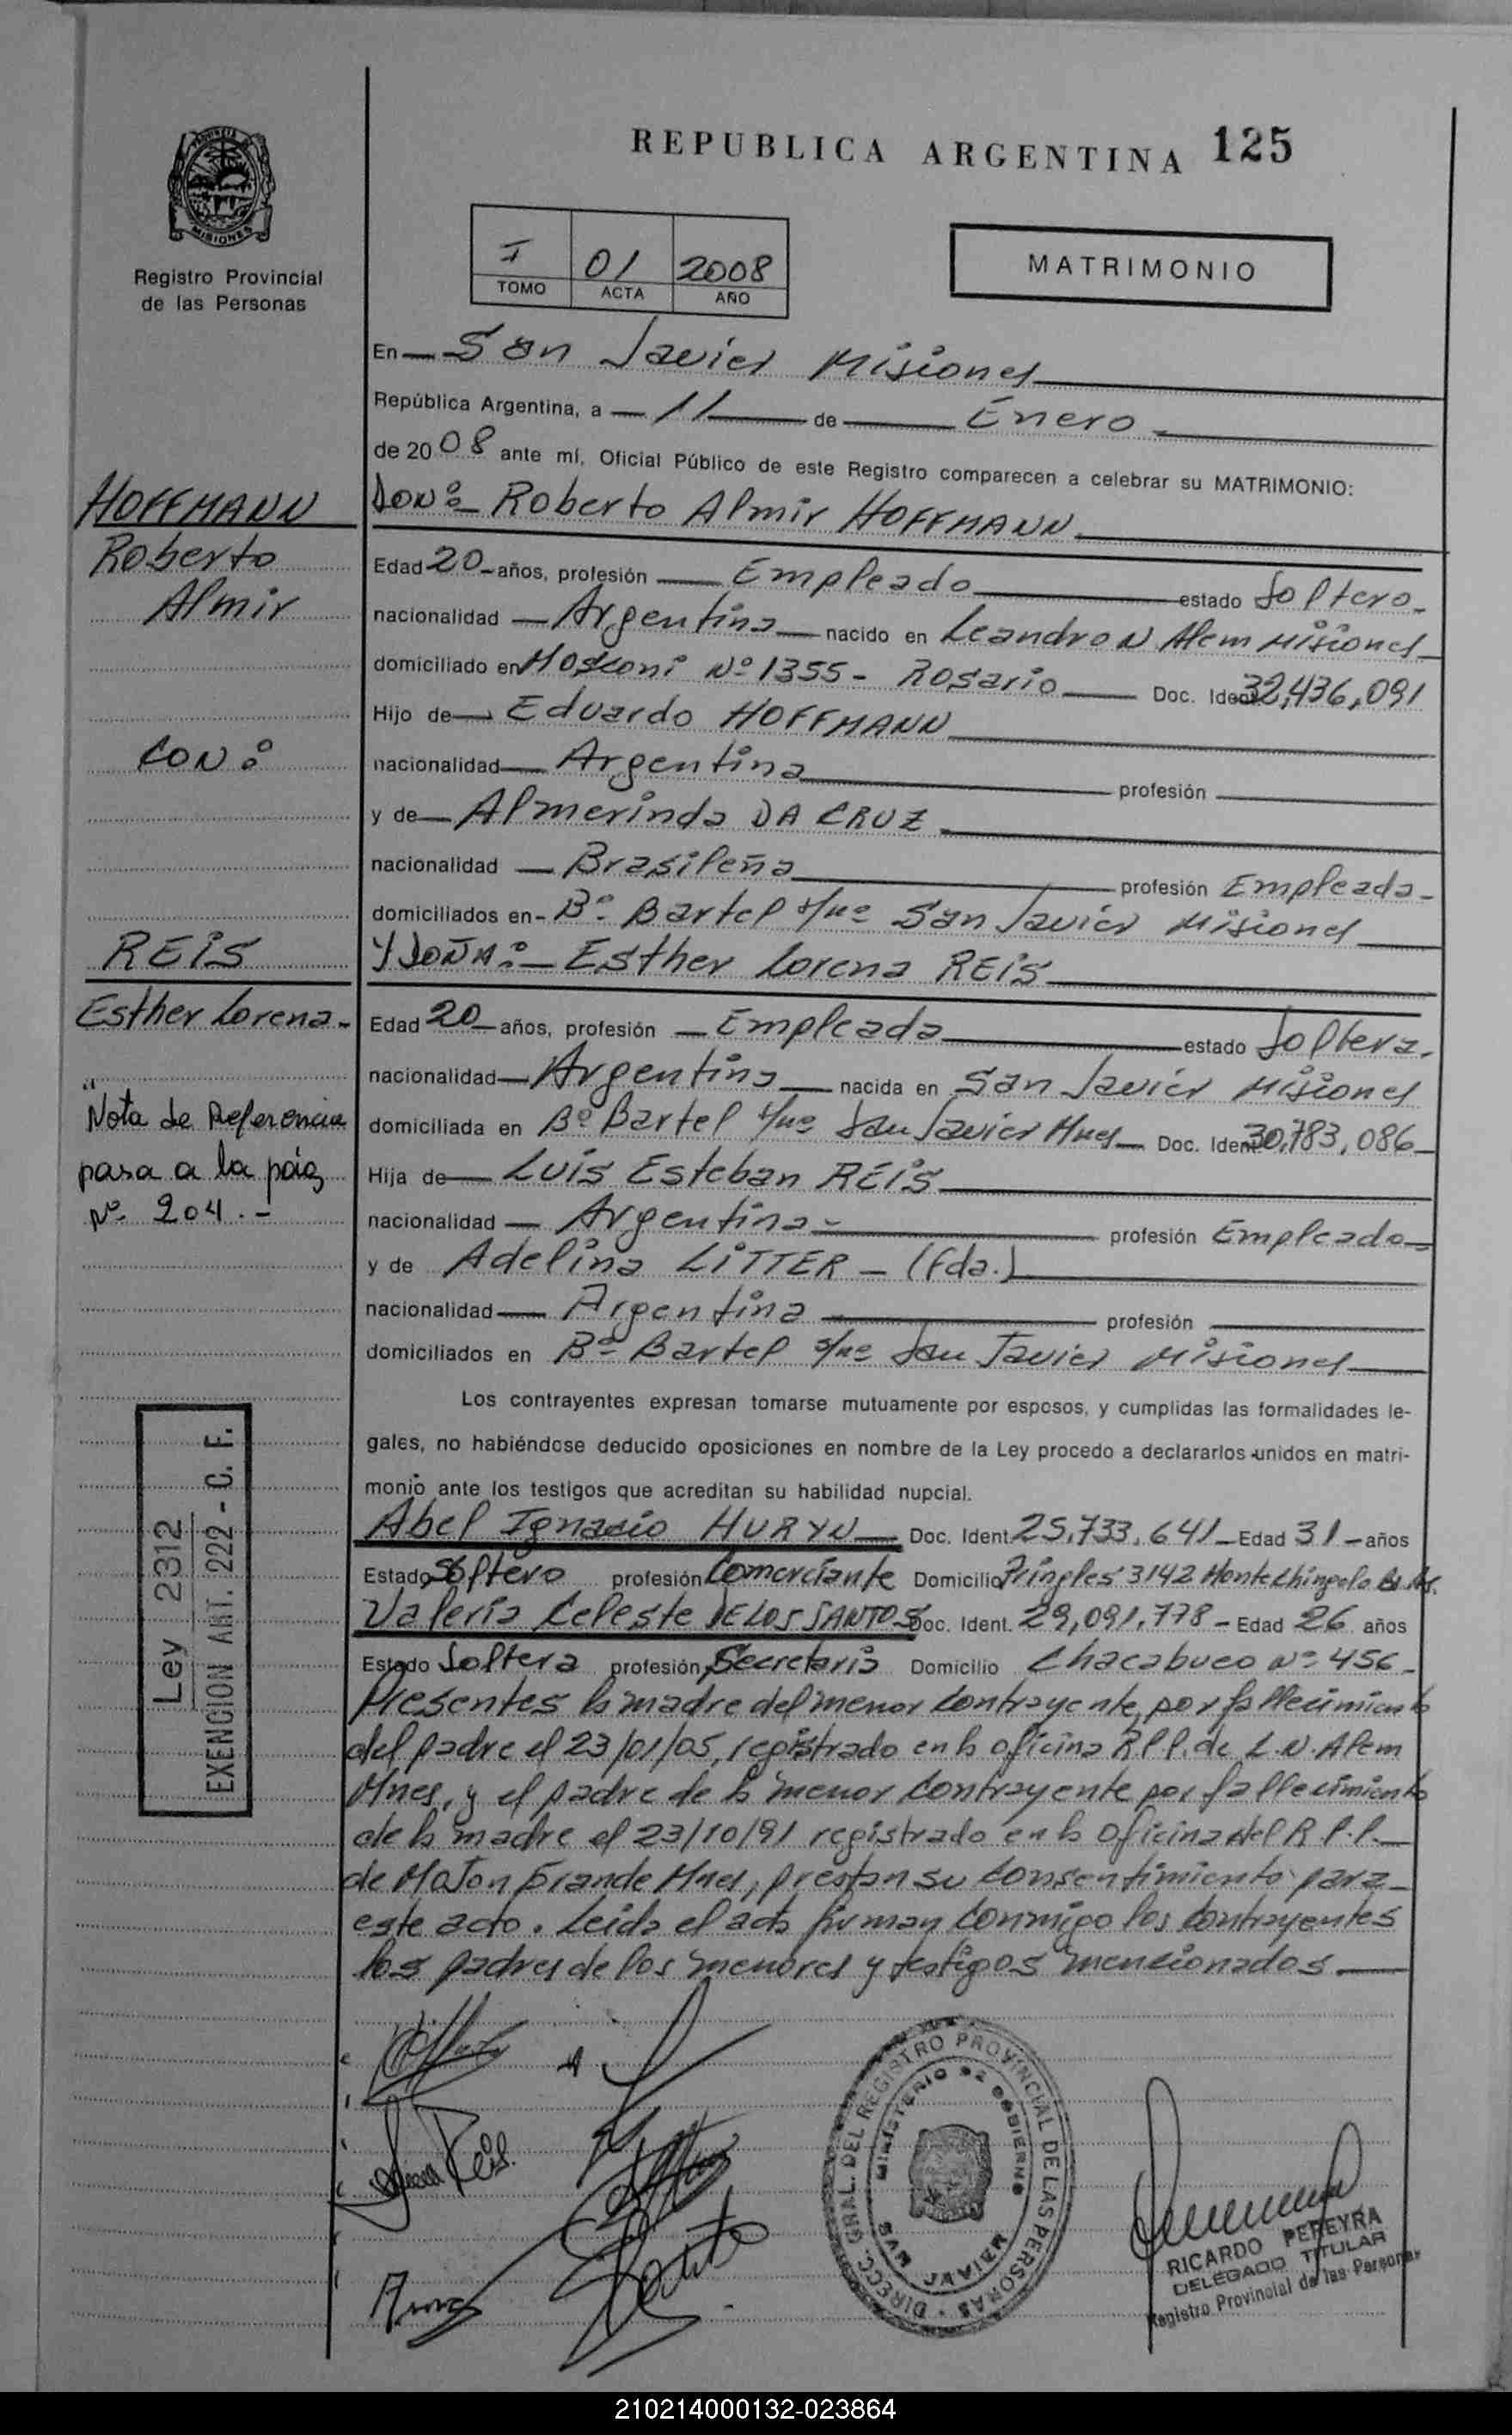 REPUBLICA ARGENTINA 125
MISIONES
Registro Provincial
de las Personas
I 01 2008
TOMO ACTA AÑO
MATRIMONIO
En San Javier Misiones
República Argentina, a 11 de Enero
de 2008 ante mí, Oficial Público de este Registro comparecen a celebrar su MATRIMONIO:
HOFFMANN
Roberto
Almir
CON:
REIS
Esther Lorena
"Nota de Referencia
pasa a la pág
Nº 204.-
DON: Roberto Almir HOFFMANN
Edad 20 años, profesión Empleado estado Soltero
nacionalidad Argentina nacido en Leandro N Alem Misiones
domiciliado en Mosconi Nº 1355 - Rosario Doc. Ident. 32,436,091
Hijo de Eduardo HOFFMANN
nacionalidad Argentina profesión
y de Almerinda DA CRUZ
nacionalidad Brasileña profesión Empleada
domiciliados en Bº Bartel s/nº San Javier Misiones
Y DOÑA: Esther Lorena REIS
Edad 20 años, profesión Empleada estado Soltera
nacionalidad Argentina nacida en San Javier Misiones
domiciliada en Bº Bartel s/nº San Javier Mnes Doc. Ident. 30,783,086
Hija de Luis Esteban REIS
nacionalidad Argentina profesión Empleado
y de Adelina LITTER - (fda.)
nacionalidad Argentina profesión
domiciliados en Bº Bartel s/nº San Javier Misiones
Los contrayentes expresan tomarse mutuamente por esposos, y cumplidas las formalidades le-
gales, no habiéndose deducido oposiciones en nombre de la Ley procedo a declararlos unidos en matri-
monio ante los testigos que acreditan su habilidad nupcial.
Abel Ignacio HURYN Doc. Ident. 25.733.641 Edad 31 años
Estado Soltero profesión Comerciante Domicilio Pringles 3142 Monte Chingolo Bs As.
Valeria Celeste DE LOS SANTOS Doc. Ident. 29,091.778 - Edad 26 años
Estado Soltera profesión Secretaria Domicilio Chacabuco Nº 456
Presentes la madre del menor contrayente, por fallecimiento
del padre el 23/01/05, registrado en la oficina R.P.P. de L.N. Alem
Mnes, y el padre de la menor contrayente por fallecimiento
de la madre el 23/10/91 registrado en la oficina del R.P.P.
de Mojon Grande Mnes, prestan su consentimiento para
este acto. Leída el acta firman conmigo los contrayentes
los padres de los menores y testigos mencionados
Ley 2312
EXENCION ART. 222 - C. F.
Reis.
DIRECC. GRAL. DEL REGISTRO PROVINCIAL DE LAS PERSONAS
MINISTERIO DE GOBIERNO
SAN JAVIER
RICARDO PEREYRA
DELEGADO TITULAR
Registro Provincial de las Personas
210214000132-023864